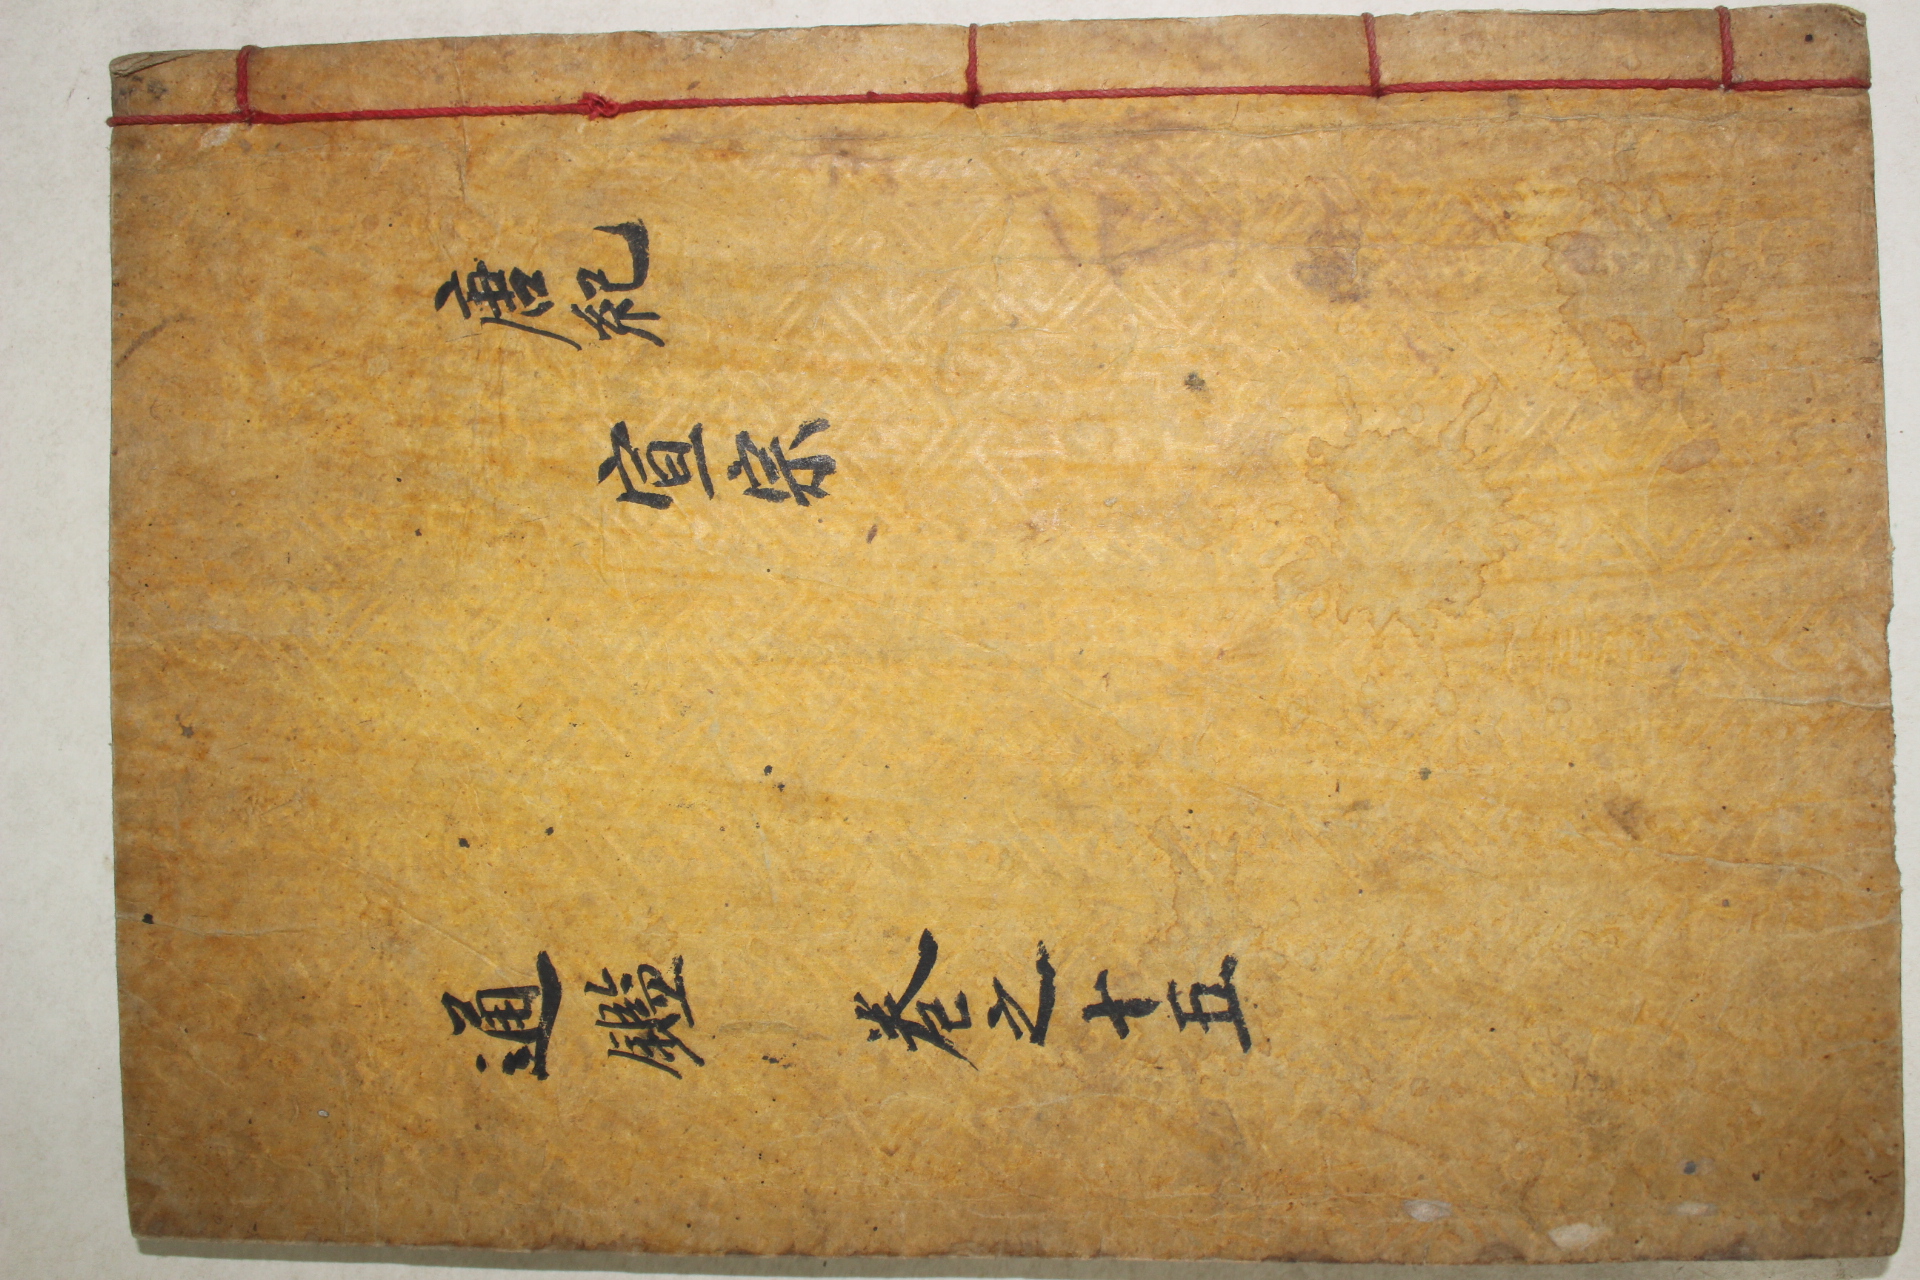 通鑑 卷之十五
唐紀
宣宗